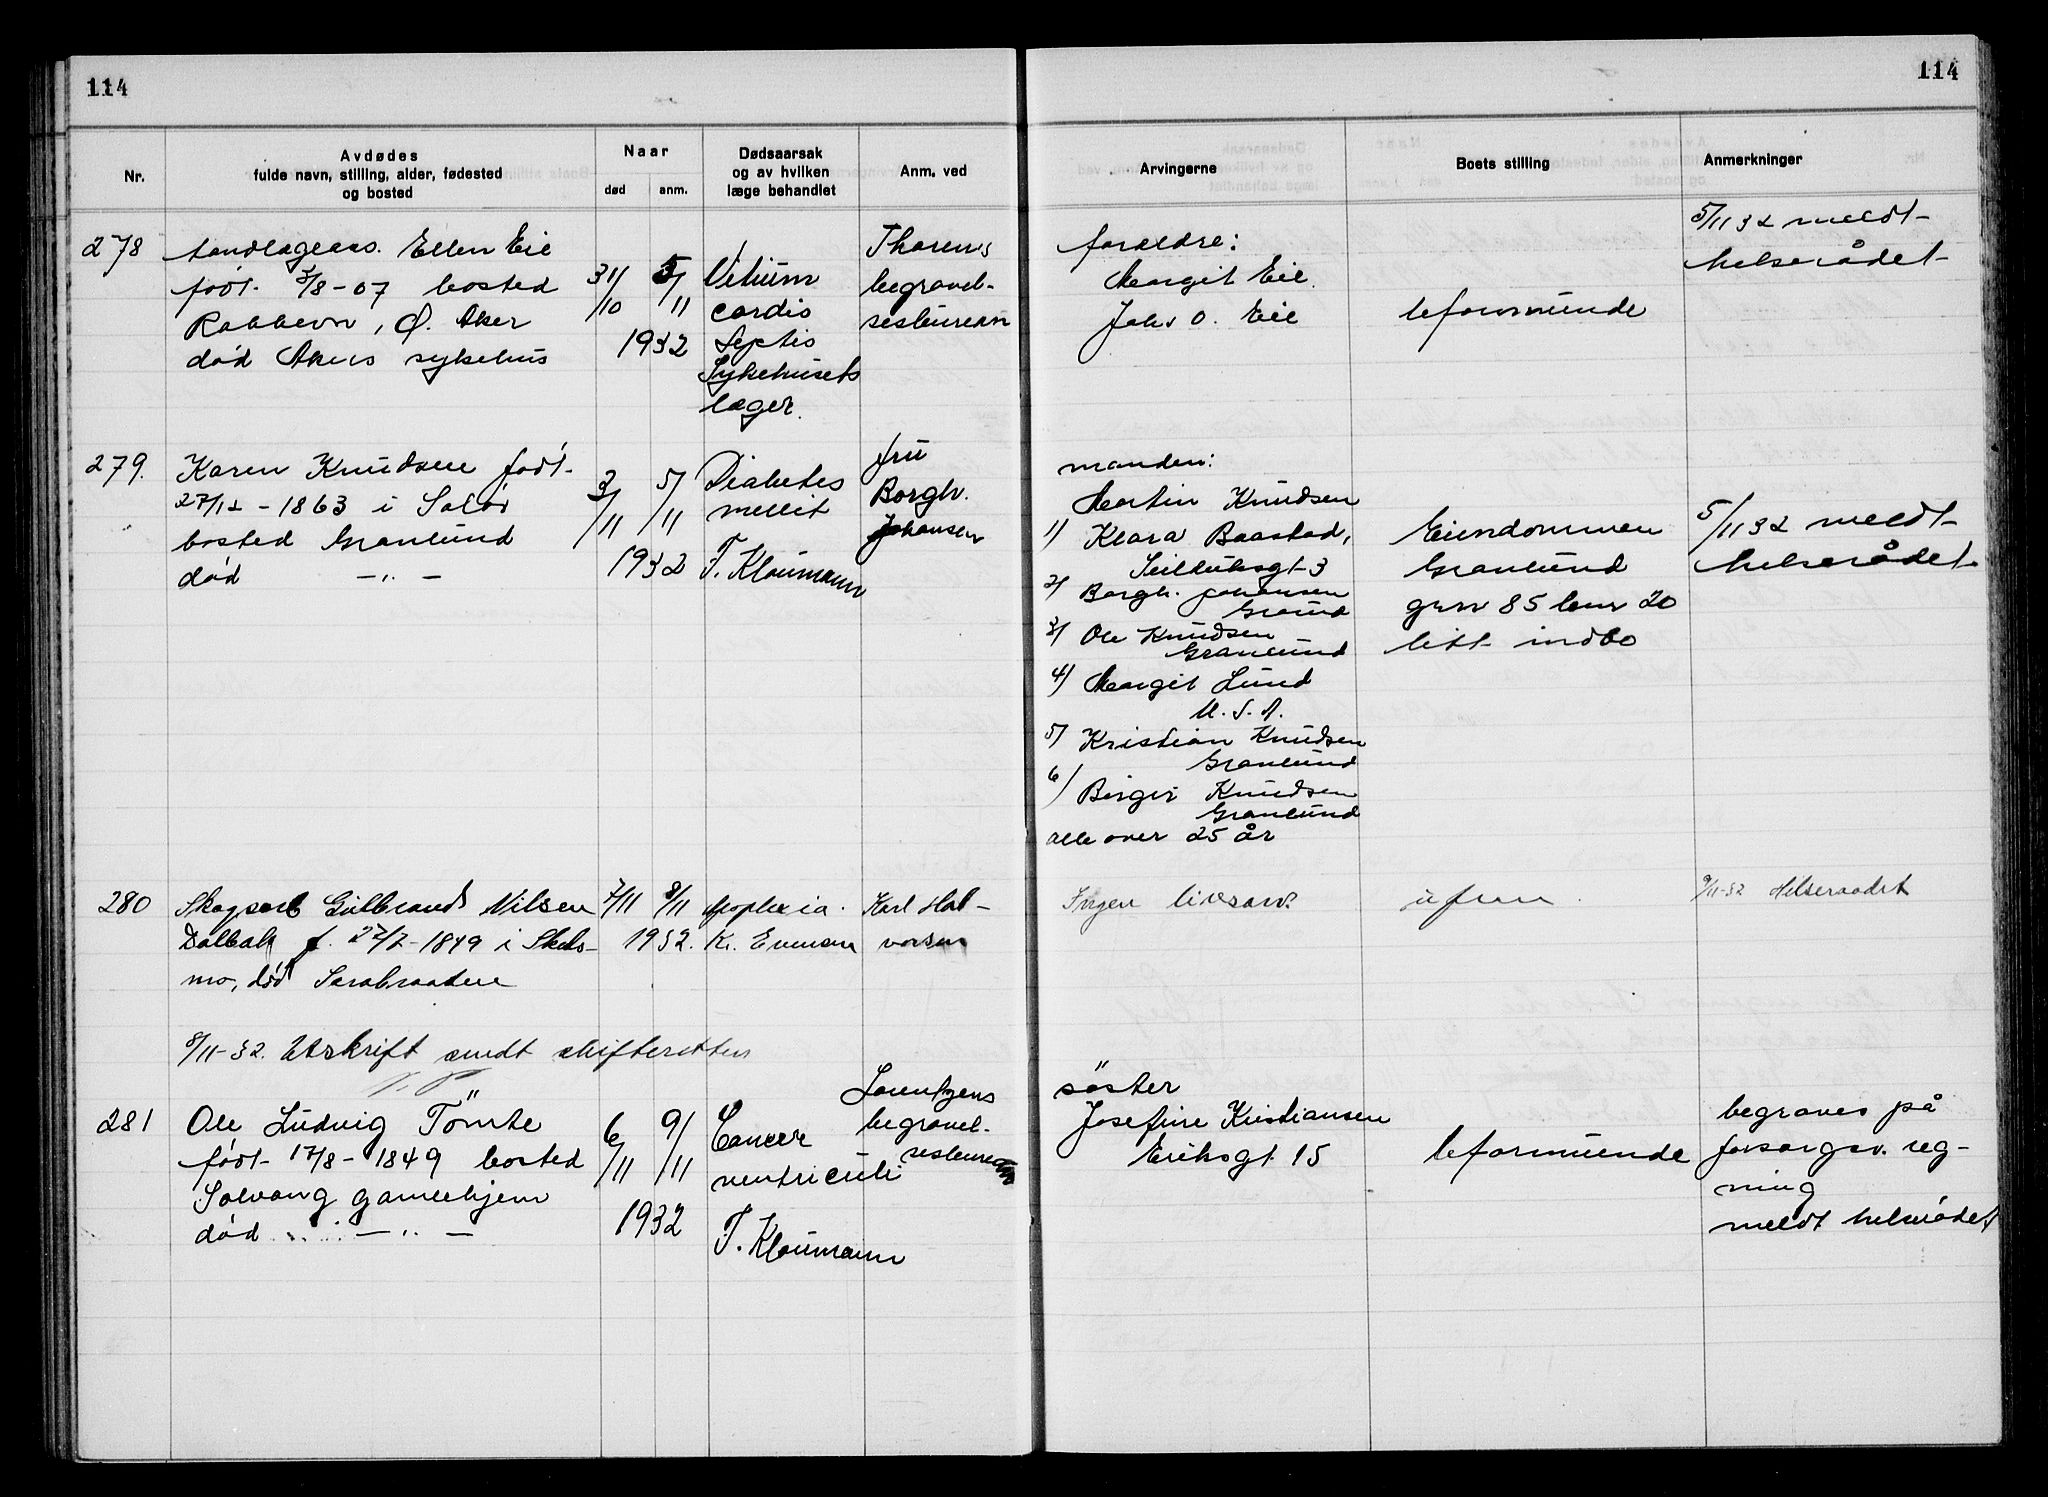 114
114
Nr.
Avdødes
fulde navn, stilling, alder, fødested
og bosted
Naar
død
anm.
Dødsaarsak
og av hvilken
læge behandlet
Anm. ved
Arvingerne
Boets stilling
Anmerkninger
278
Ellen Eie
født 3/8-07 bosted
Ø. Aker
død Akers sykehus
31/10
5/11
1932
Vitium
cordis
Septis
Sykehusets
læger.
Thorens
begravel-
sesbureau
foreldre:
Margit Eie.
Johs O. Eie
uformuende
5/11 32 meldt
helserådet
279.
Karen Knudsen født
27/12 - 1863 i Solør
bosted Granlund
død -"-
3/11
5/11
1932
Diabetes
mellit
T. Kloumann
fru
Borgh.
Johansen
manden:
Martin Knudsen
1) Klara Baastad,
Seilduksgt 3
2) Borgh. Johansen
3) Ole Knudsen
Granlund
4) Margit Lund
U.S.A.
5) Kristian Knudsen
Granlund
6) Birger Knudsen
Granlund
alle over 25 år
Eiendommen
Granlund
gnr 85 bnr 20
litt indbo
5/11 32 meldt
helserådet
280
Skogsarb Gulbrand Nilsen
Dalbak f. 27/7-1849 i Skeds-
mo, død Sarabraaten
7/11
8/11
1932.
Apoplexia.
Kr. Evensen
Karl Hal-
vorsen
Ingen livsarv.
ufm
9/11-32 Helseraadet
8/11-32. Utskrift sendt skifteretten
281
Ole Ludvig Tömte
født 17/8-1849 bosted
Solvang gamlehjem
død -"-
6/11
9/11
1932
Cancer
ventriculi
T. Kloumann
Lorentzens
begravel-
sesbureau
søster
Josefine Kristiansen
Eriksgt 15
uformuende
begraves på
forsorgsv. reg-
ning
meldt helserådet